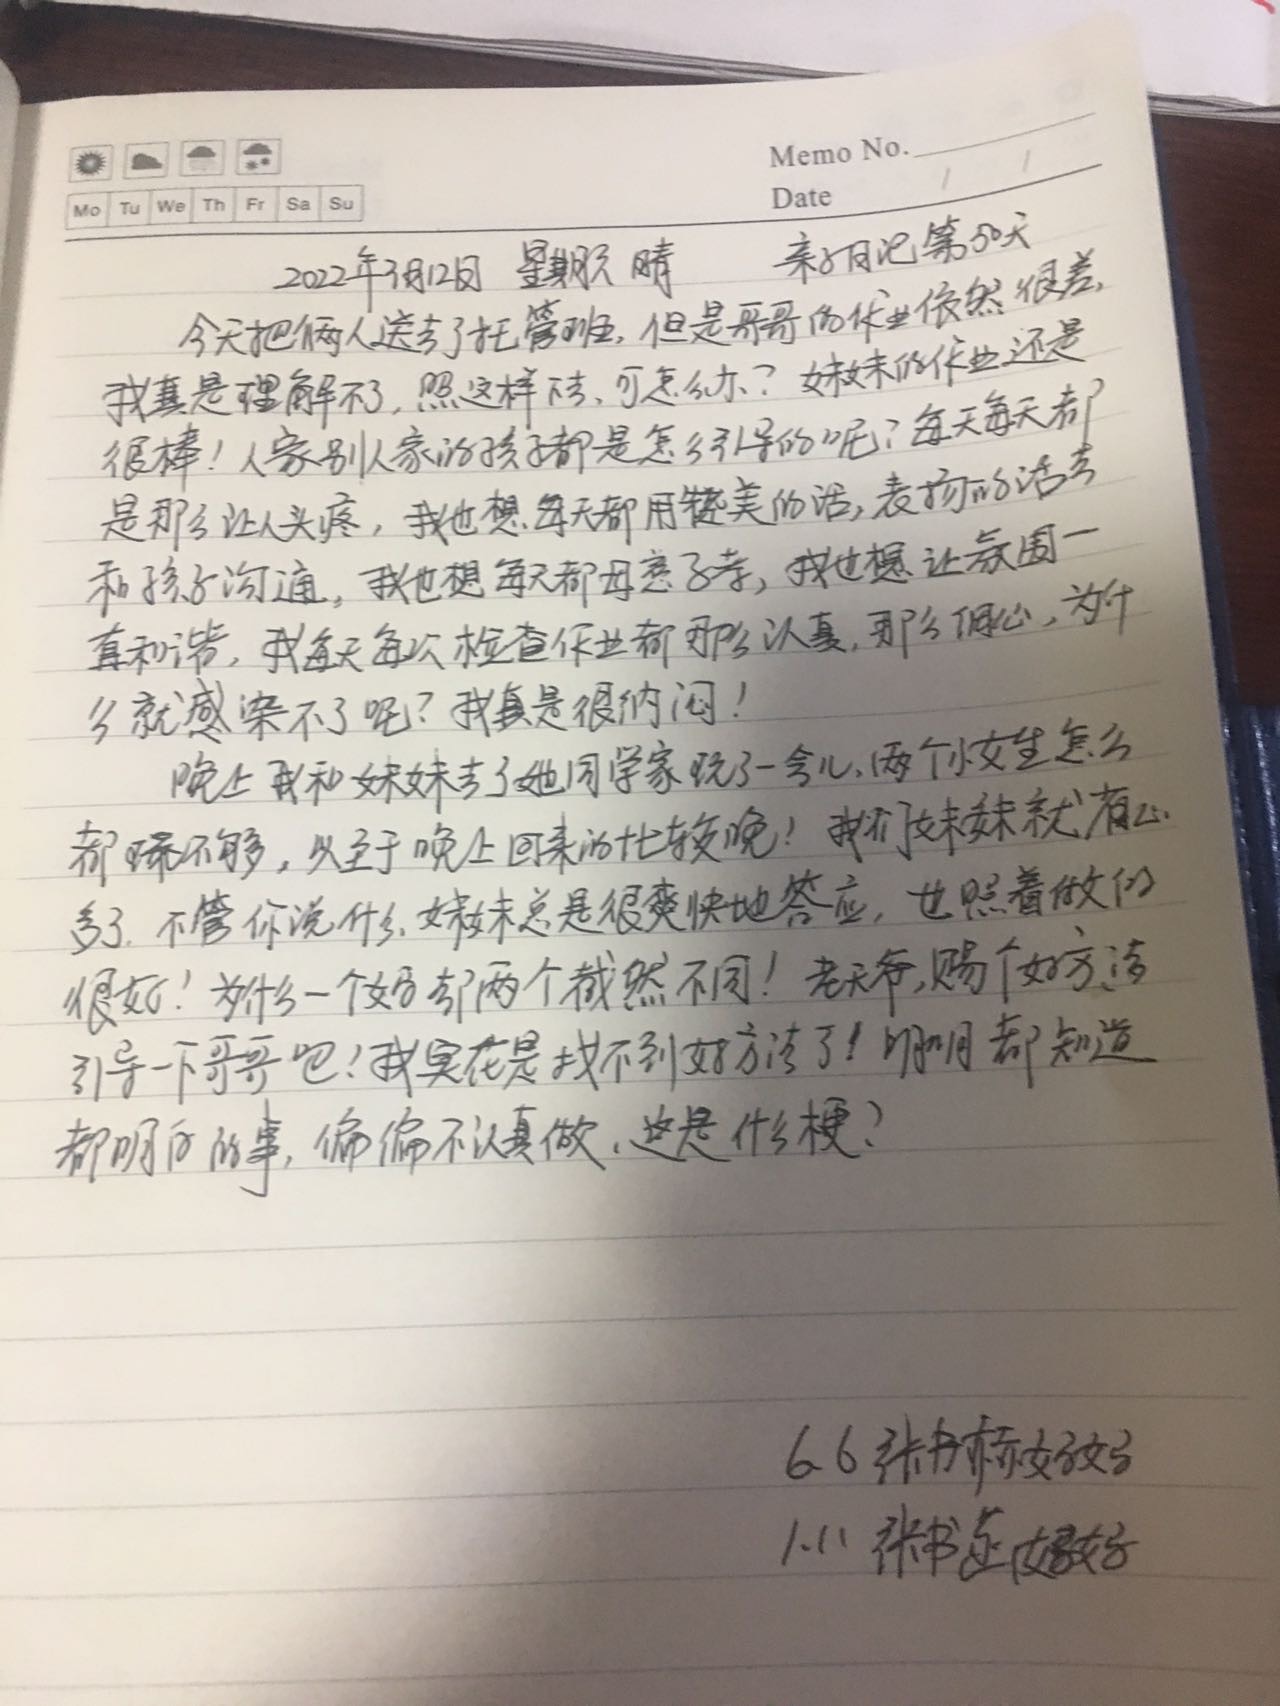 Memo No.
Date / /
Mo Tu We Th Fr Sa Su
2022年3月12日 星期六 晴 亲子日记第50天
今天把俩人送去了托管班,但是哥哥的作业依然很差,
我真是理解不了,照这样下去、可怎么办?妹妹的作业还是
很棒!人家别人家的孩子都是怎么引导的呢?每天每天都
是那么让人头疼,我也想每天都用赞美的话,表扬的话去
和孩子沟通,我也想每天都母慈子孝,我也想让氛围一
直和谐,我每天每次检查作业都那么认真,那么细心,为什
么就感染不了呢?我真是很纳闷!
晚上我和妹妹去了她同学家玩了一会儿、两个小女生怎么
都玩不够,以至于晚上回来的比较晚!我们妹妹就省心
多了.不管你说什么、妹妹总是很爽快地答应,也照着做的
很好!为什么一个妈却两个截然不同!老天爷,赐个好方法
引导一下哥哥吧!我实在是找不到好方法了!明明都知道
都明白的事,偏偏不认真做、这是什么梗?
6.6 张书妈妈
1.11 张书妈妈